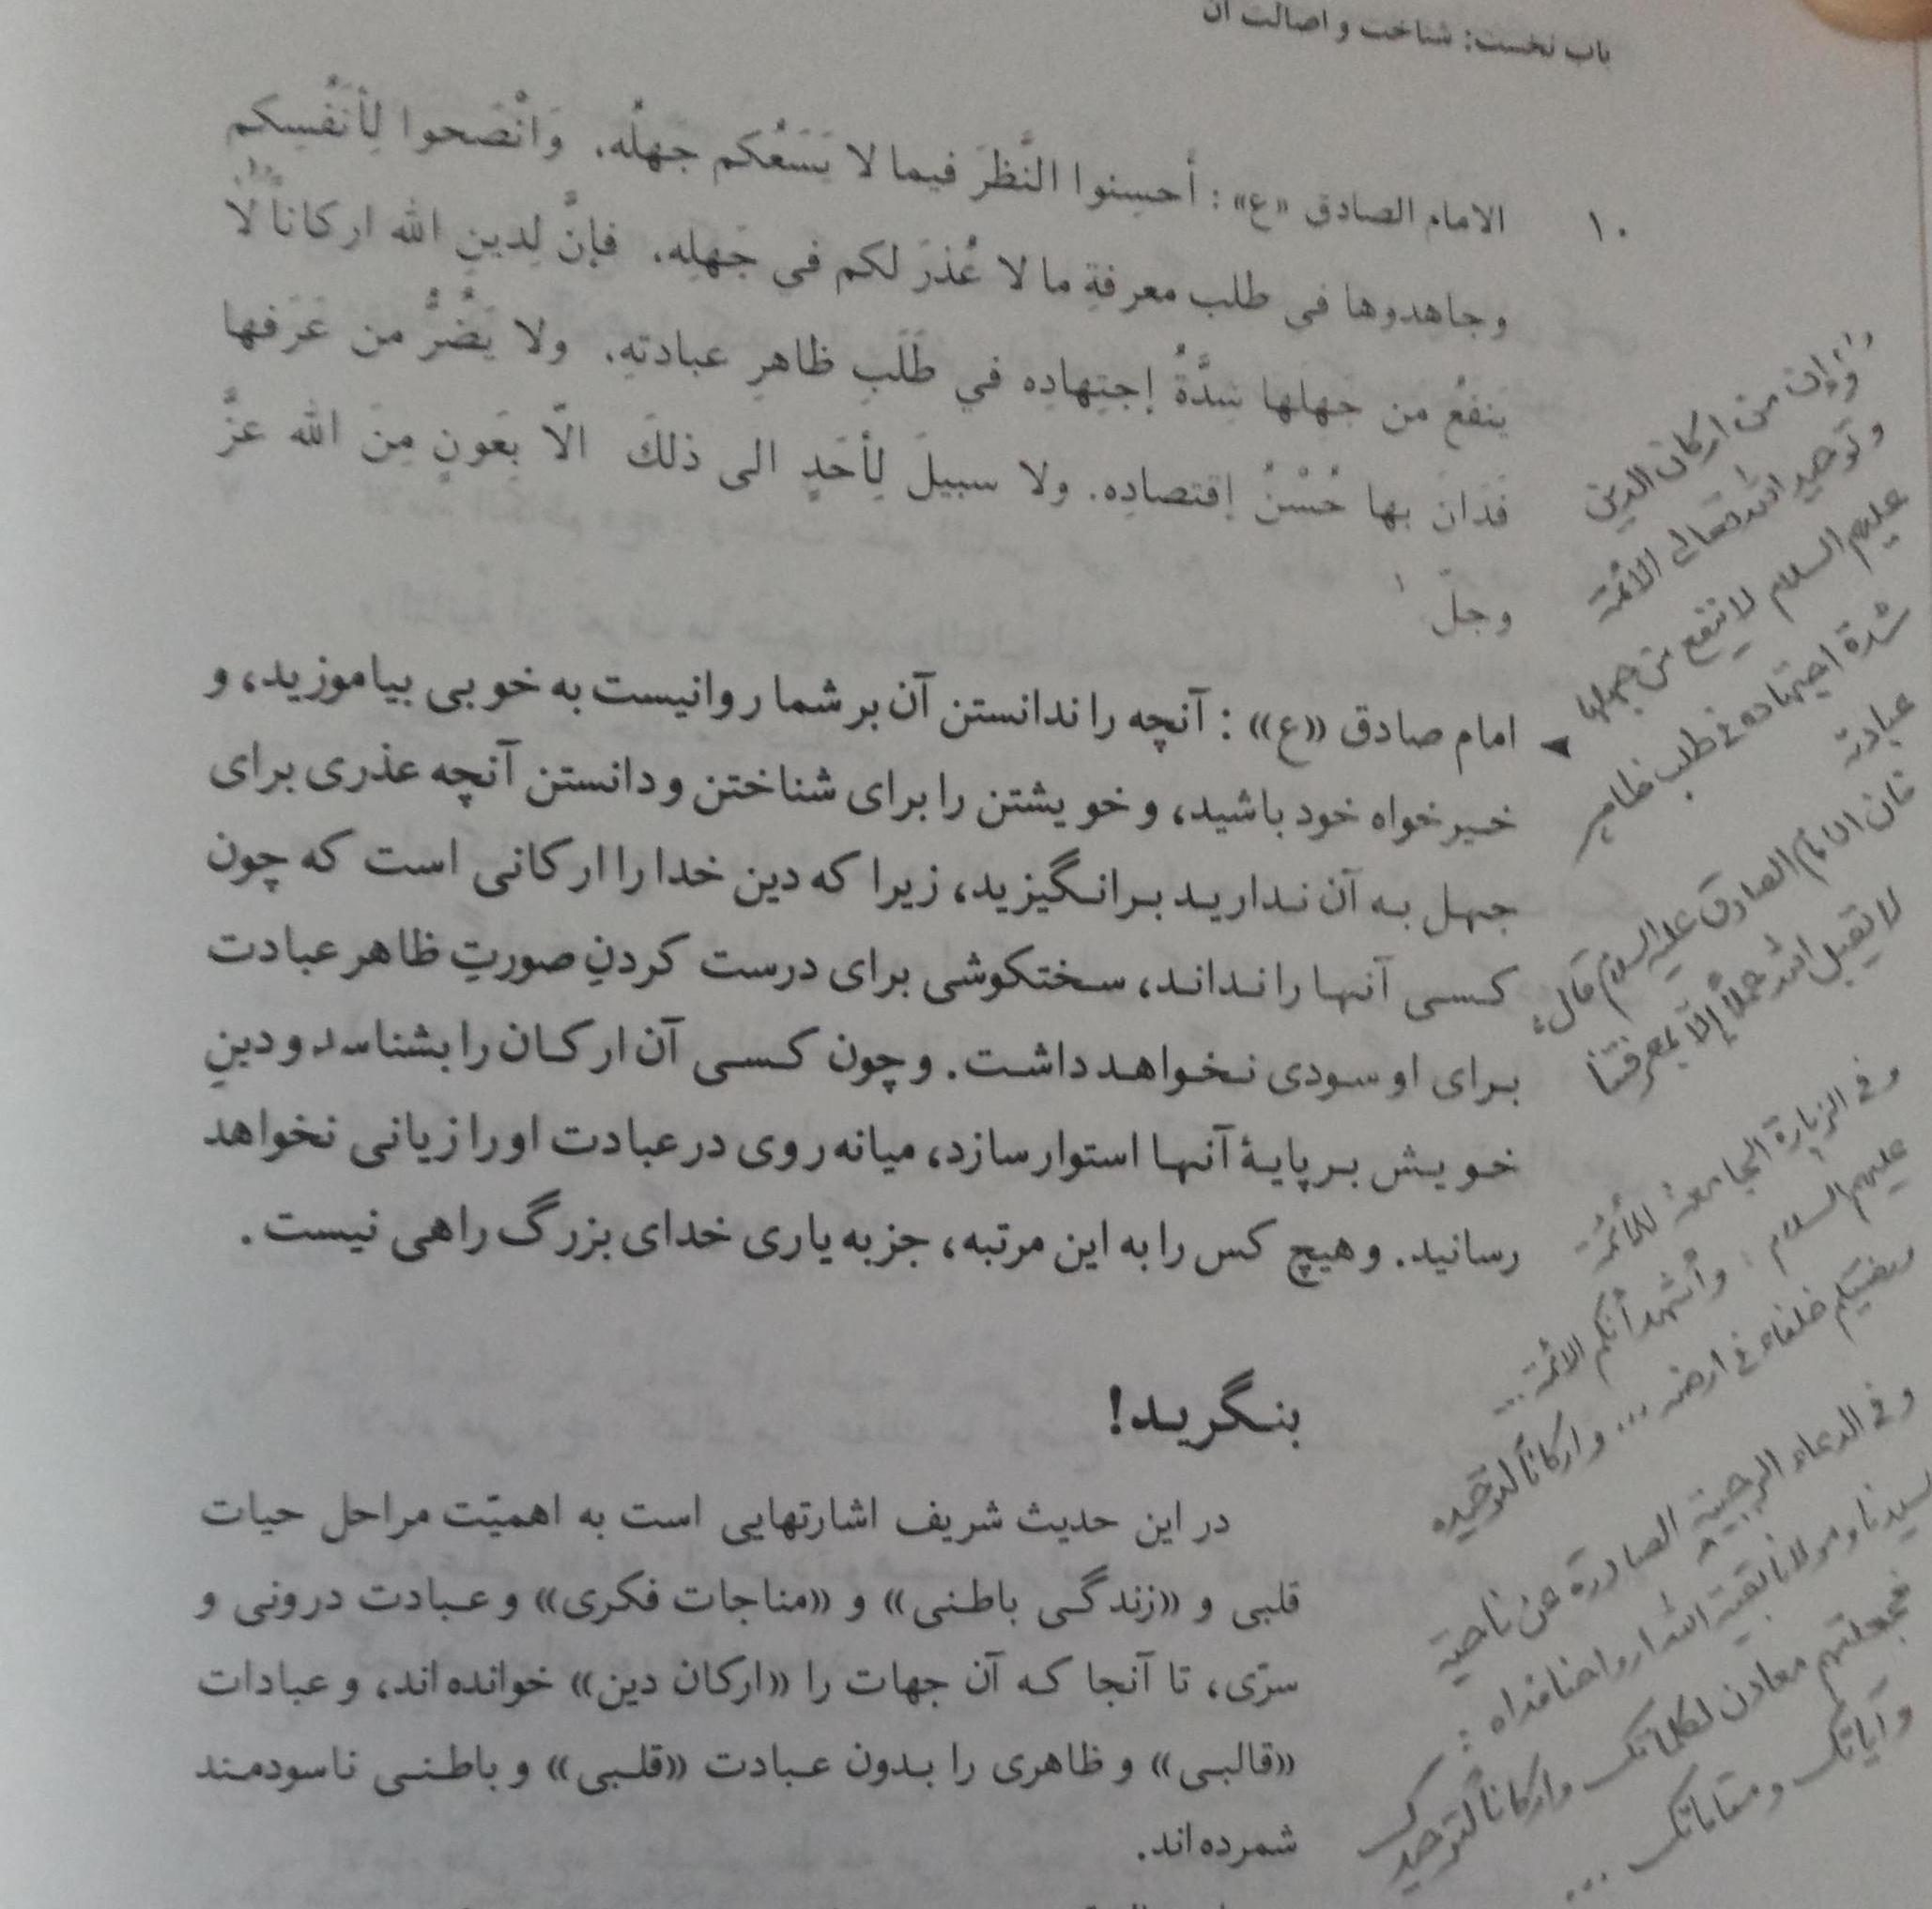 باب نخست: شناخت و اصالت آن
١٠ الامام الصادق «ع»: أحسِنوا النَّظرَ فیما لا یَسَعُکم جهلُه. وَانْصَحوا لِأنفُسِکم
وجاهدوها فی طلب معرفةِ ما لا عُذرَ لکم فی جَهلِه. فإنَّ لِدینِ الله ارکاناً لا
یَنفعُ من جَهلها شِدَّةُ إجتِهادِه في طَلَبِ ظاهرِ عبادتهِ. ولا یَضُرُّ من عَرَفها
فَدَانَ بها حُسْنُ إقتصادِه. ولا سبیلَ لِأحَدٍ الی ذلكَ الّا بِعَونٍ مِنَ الله عزَّ
وجلّ ١
امام صادق «ع»: آنچه را ندانستن آن بر شما روا نیست به خوبی بیاموزید، و
خیرخواه خود باشید، و خویشتن را برای شناختن و دانستن آنچه عذری برای
جهل به آن ندارید برانگیزید، زیرا که دین خدا را ارکانی است که چون
کسی آنها را نداند، سختکوشی برای درست کردنِ صورتِ ظاهر عبادت
برای او سودی نخواهد داشت. و چون کسی آن ارکان را بشناسد و دینِ
خویش بر پایهٔ آنها استوار سازد، میانه روی در عبادت او را زیانی نخواهد
رسانید. و هیچ کس را به این مرتبه، جز به یاری خدای بزرگ راهی نیست.
بنگرید!
در این حدیث شریف اشارتهایی است به اهمیّت مراحل حیات
قلبی و «زندگی باطنی» و «مناجات فکری» و عبادت درونی و
سرّی، تا آنجا که آن جهات را «ارکان دین» خوانده‌اند، و عبادات
«قالبی» و ظاهری را بدون عبادت «قلبی» و باطنی ناسودمند
شمرده‌اند.
وإن من ارکان الدین
و توحید الله تعالی الائمة
علیهم السلام لا ینفع من جهلها
شدة اجتهاده فی طلب ظاهر
عبادته
فان الامام الصادق علیه السلام قال:
لا یقبل الله عملاً إلّا بمعرفتنا
و فی الزیارة الجامعة للأئمة
علیهم السلام: و أشهد أنکم الائمة...
رضیکم خلفاء فی ارضه ... و ارکاناً لتوحیده
و فی الدعاء الرجبیة الصادرة عن ناحیة
سیدنا و مولانا بقیة الله ارواحنا فداه:
فجعلتهم معادن لکلماتک و ارکاناً لتوحیدک
و آیاتک و مقاماتک ...